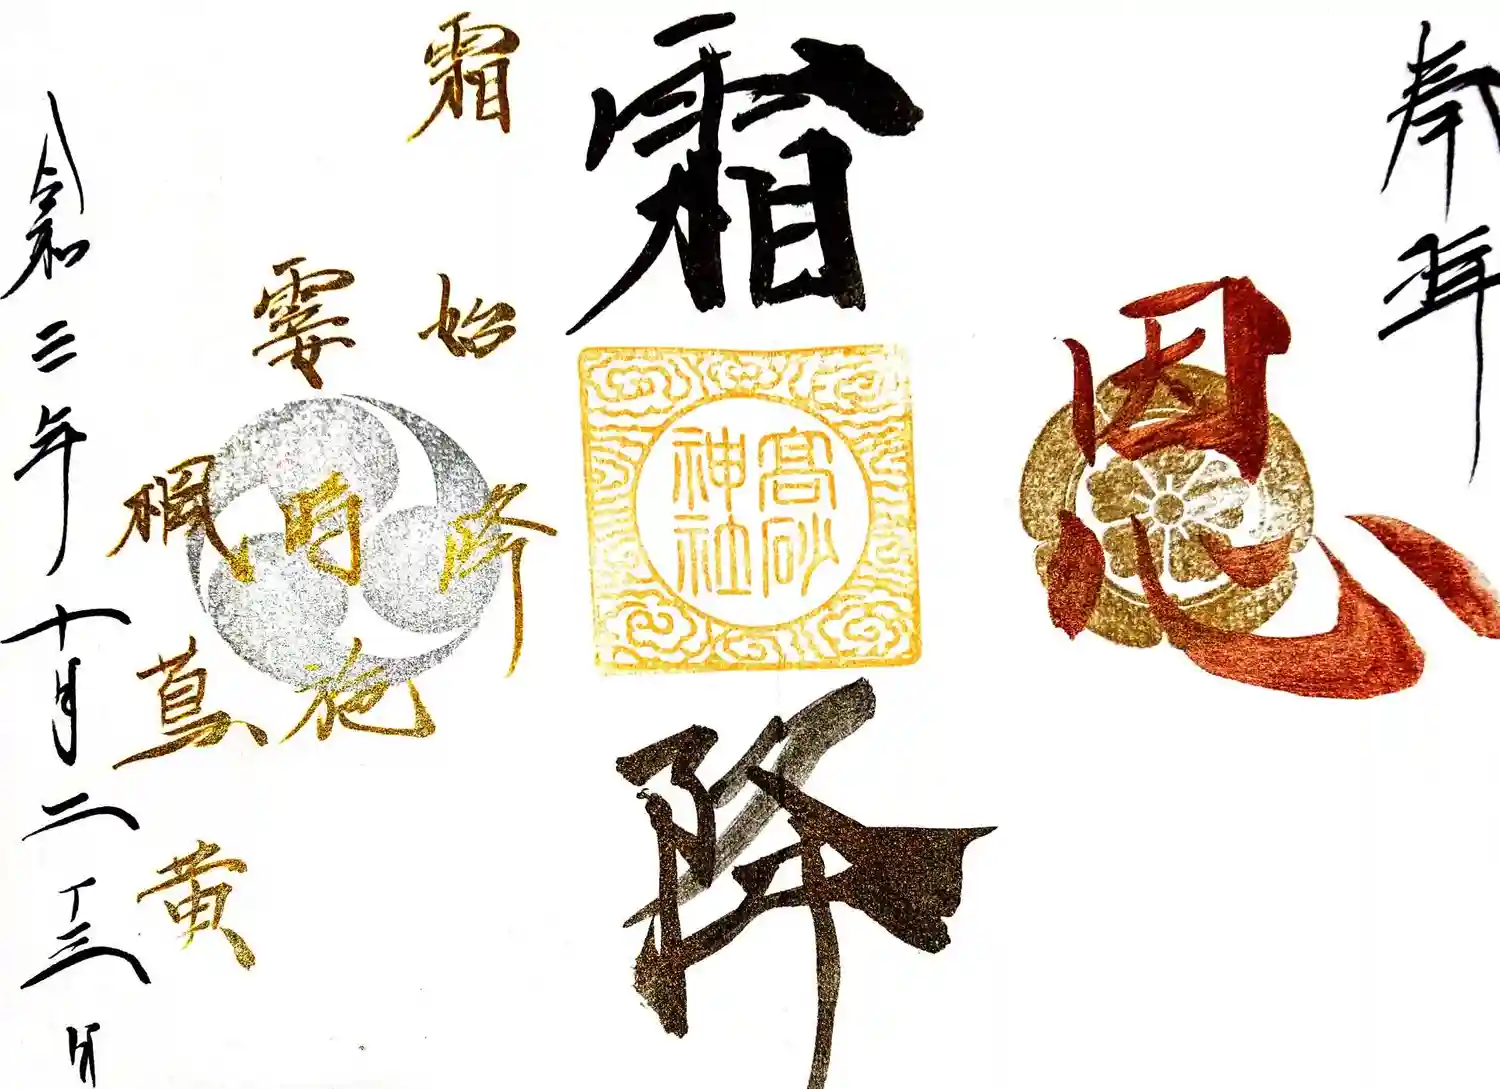 奉拝
恩
霜降
髙砂
神社
霜始降
霎時施
楓蔦黄
令和二年十月二十三日